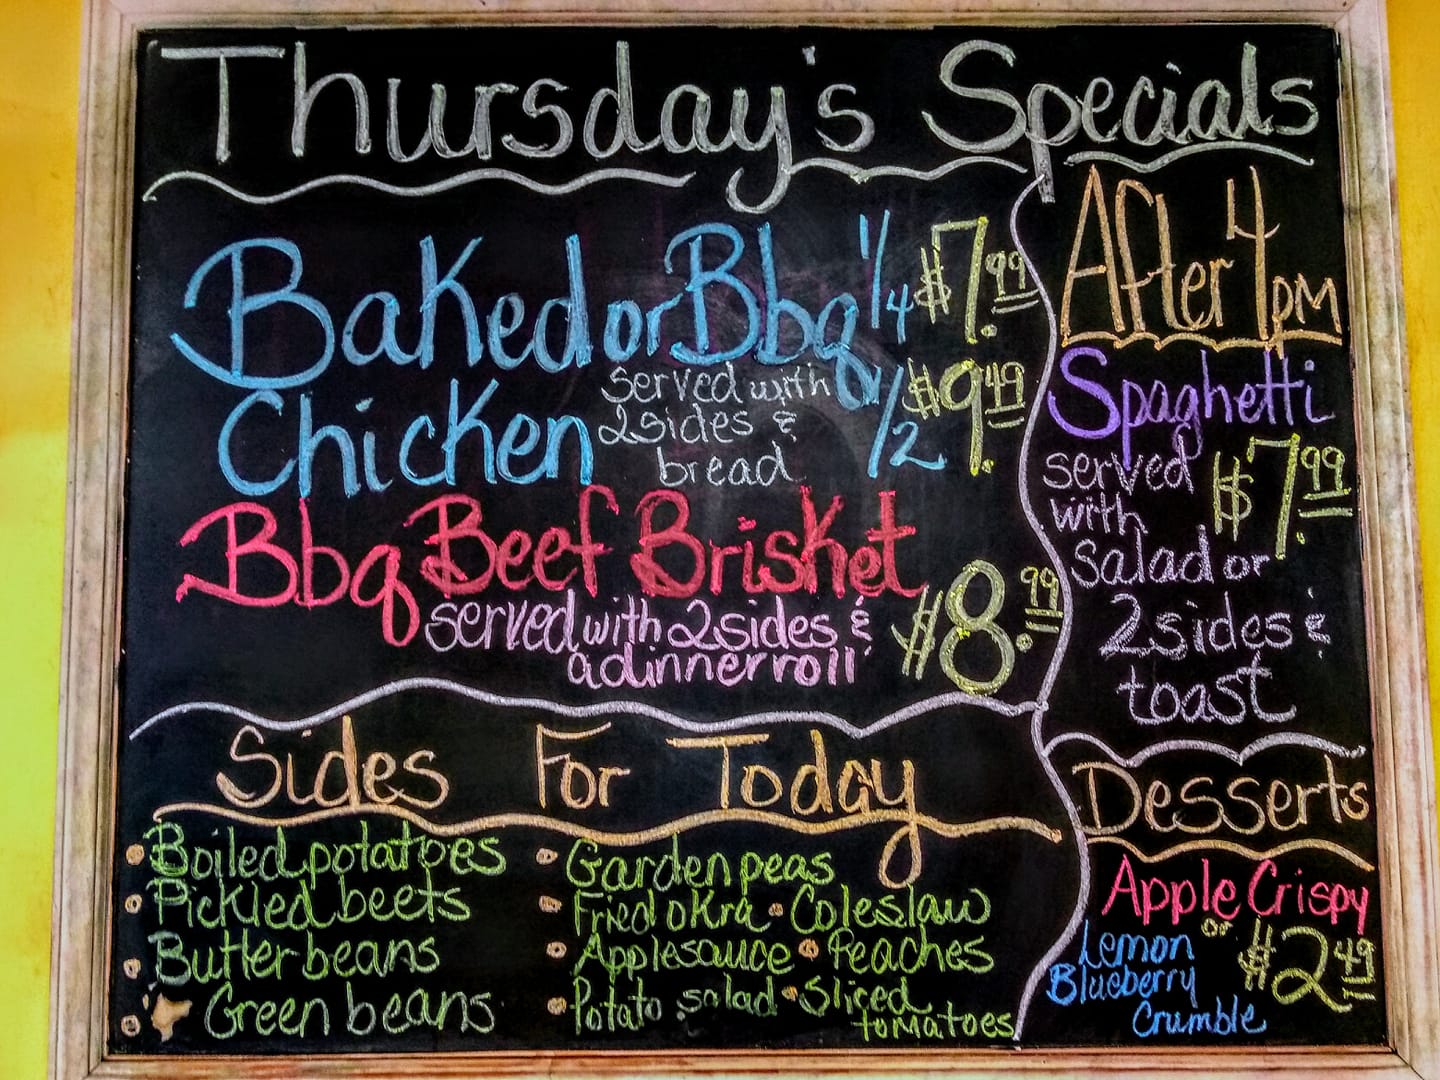 Thursday's Specials
Baked or Bbq 1/4 $7.99
Chicken served with 1/2 $9.49
2 sides &
bread
Bbq Beef Brisket
served with 2 sides & $8.99
a dinner roll
After 4pm
Spaghetti
served $7.99
with
salad or
2 sides &
toast
Sides For Today
• Boiled potatoes
• Pickled beets
• Butter beans
• Green beans
• Garden peas
• Fried okra • Coleslaw
• Applesauce • Peaches
• Potato salad • Sliced
tomatoes
Desserts
Apple Crispy
or
Lemon $2.49
Blueberry
Crumble